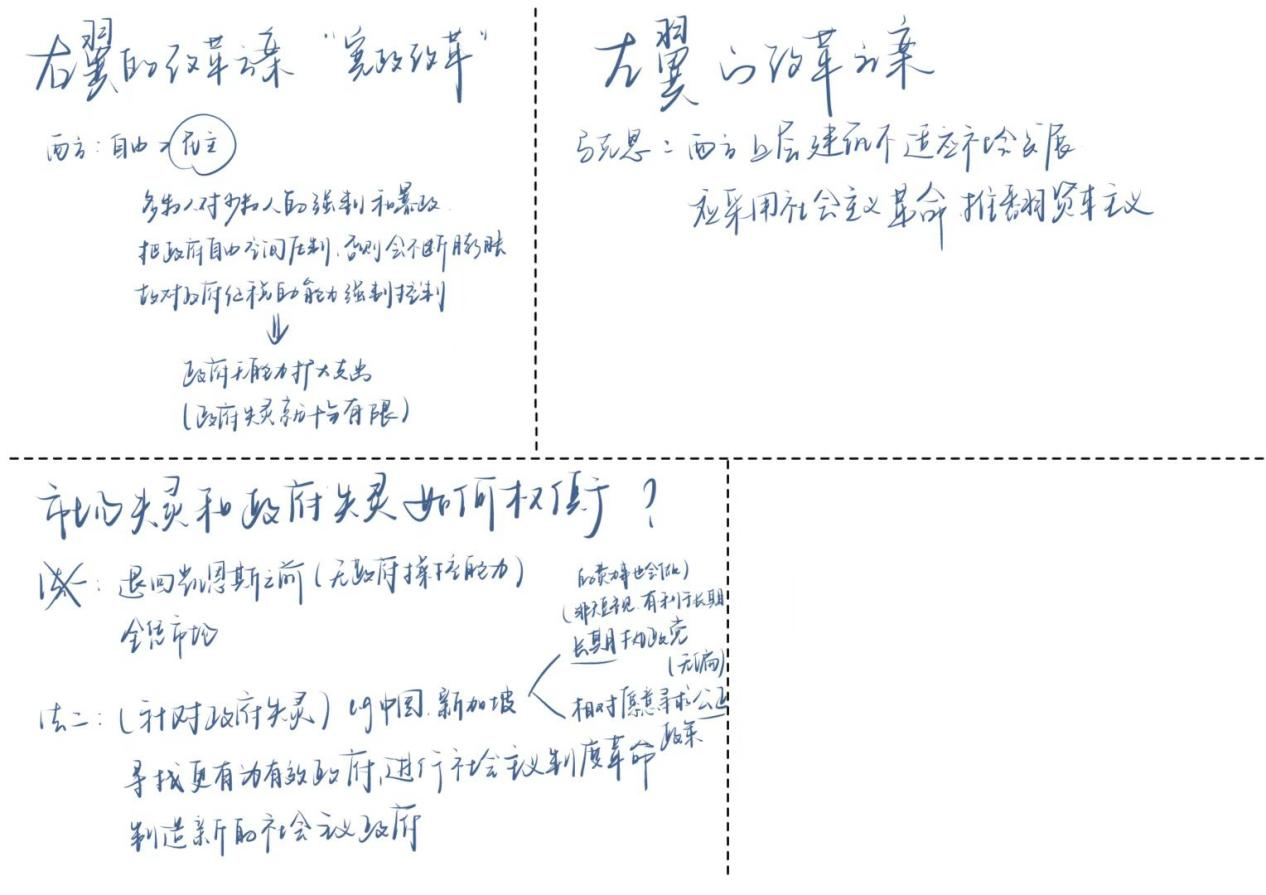 右翼的改革方案 “宪政改革”
西方：自由 > 民主
多数人对少数人的强制和暴政
把政府自由空间压制，否则会不断膨胀
故对政府征税的能力强制控制
⇓
政府无能力扩大支出
(政府失灵就十分有限)
左翼的改革方案
马克思：西方上层建筑不适应社会发展
应采用社会主义革命推翻资本主义
市场失灵和政府失灵如何权衡？
法一：退回凯恩斯之前(无政府操控能力)
全信市场
法二：(针对政府失灵) eg 中国、新加坡
(非短视，有利于长期
长期执政党
(无偏)
相对愿意寻求公正
政策
寻找更有为有效政府，进行社会主义制度革命
制造新的社会主义政府